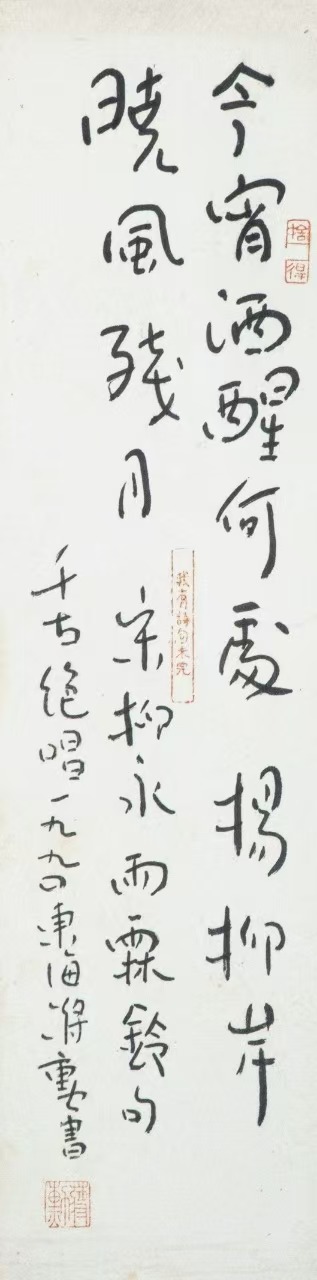 今宵酒醒何處 楊柳岸
曉風殘月 宋柳永雨霖鈴句
千古絕唱一九九四東海蔣勳書
捨得
我有詩句未完
蔣勳